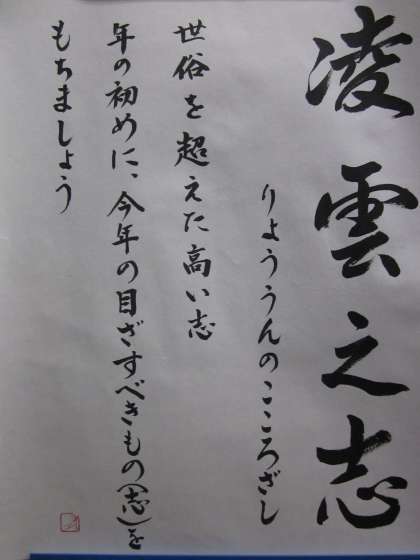 凌雲之志
りよううんのこころざし
世俗を超えた高い志
年の初めに、今年の目ざすべきもの(志)を
もちましょう